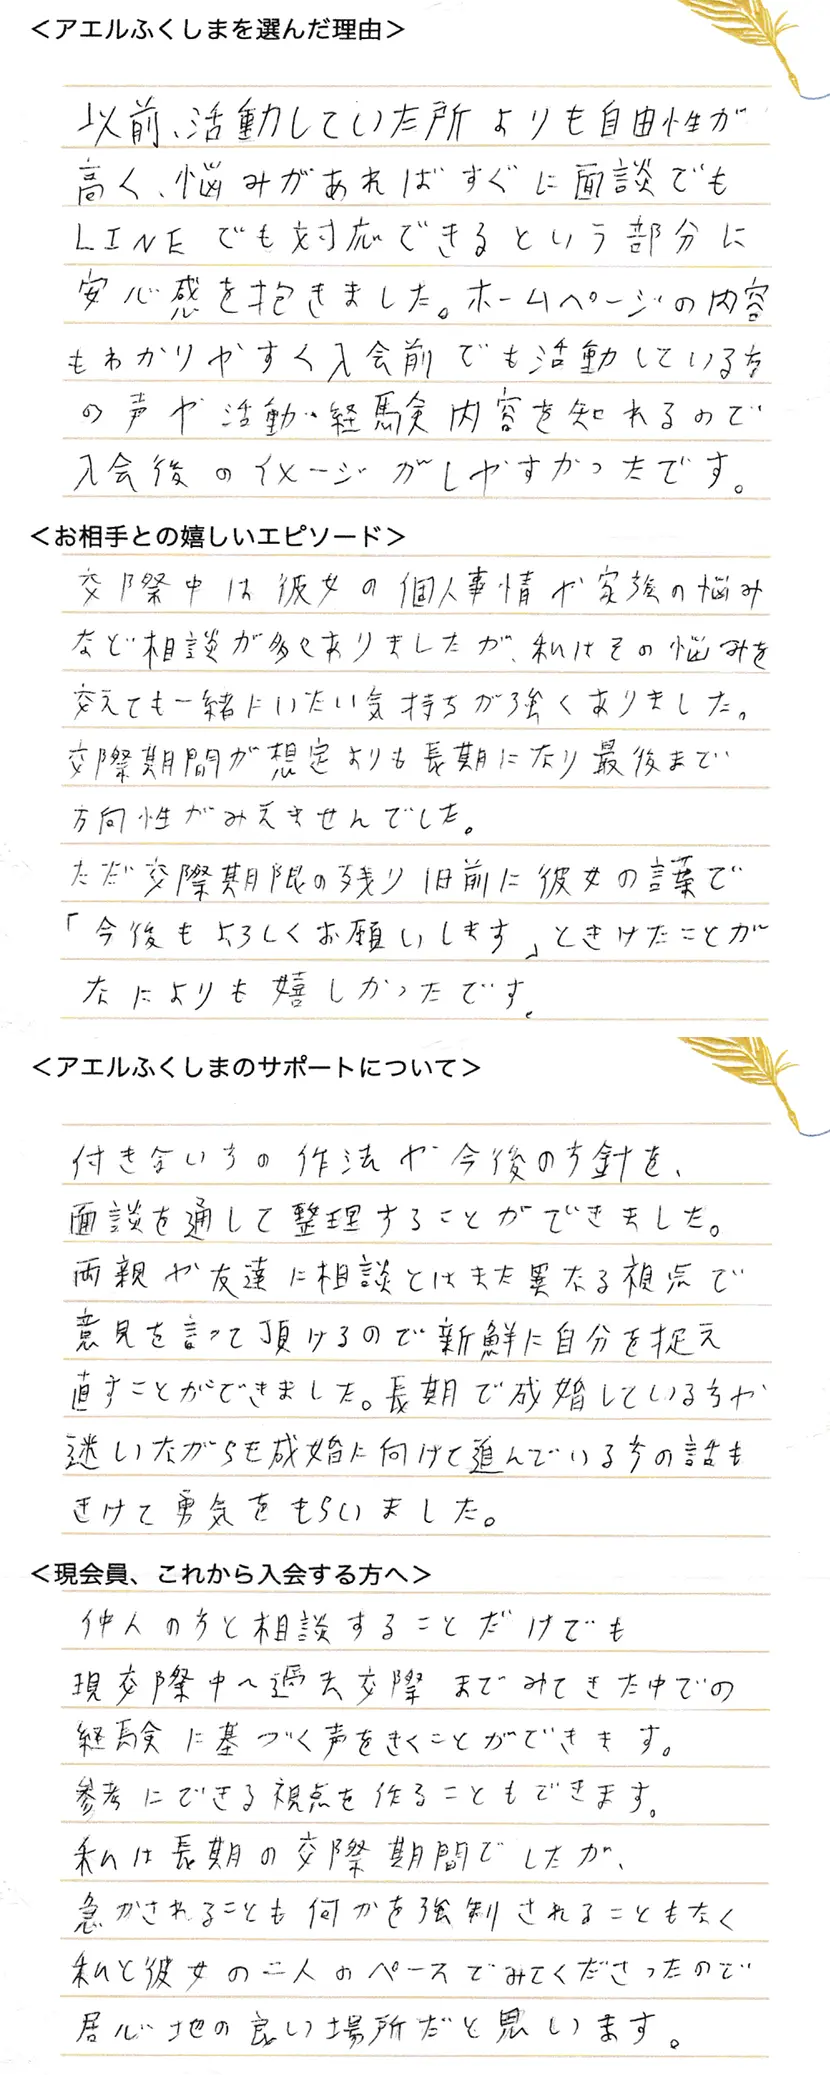 ＜アエルふくしまを選んだ理由＞
以前、活動していた所よりも自由性が
高く、悩みがあればすぐに面談でも
LINEでも対応できるという部分に
安心感を抱きました。ホームページの内容
もわかりやすく入会前でも活動している方
の声や活動・経験内容を知れるので
入会後のイメージがしやすかったです。
＜お相手との嬉しいエピソード＞
交際中は彼女の個人事情や家族の悩み
など相談が多くありましたが、私はその悩みを
交えても一緒にいたい気持ちが強くありました。
交際期間が想定よりも長期になり最後まで
方向性がみえませんでした。
ただ交際期限の残り1日前に彼女の言葉で
「今後もよろしくお願いします」ときけたことが
なによりも嬉しかったです。
＜アエルふくしまのサポートについて＞
付き合い方の作法や今後の方針を、
面談を通して整理することができました。
両親や友達に相談とはまた異なる視点で
意見を言って頂けるので新鮮に自分を捉え
直すことができました。長期で成婚している方や
迷いながらも成婚に向けて進んでいる方の話も
きけて勇気をもらいました。
＜現会員、これから入会する方へ＞
仲人の方と相談することだけでも
現交際中へ過去交際までみてきた中での
経験に基づく声をきくことができます。
参考にできる視点を作ることもできます。
私は長期の交際期間でしたが、
急かされることも何かを強制されることもなく
私と彼女の二人のペースでみてくださったので
居心地の良い場所だと思います。